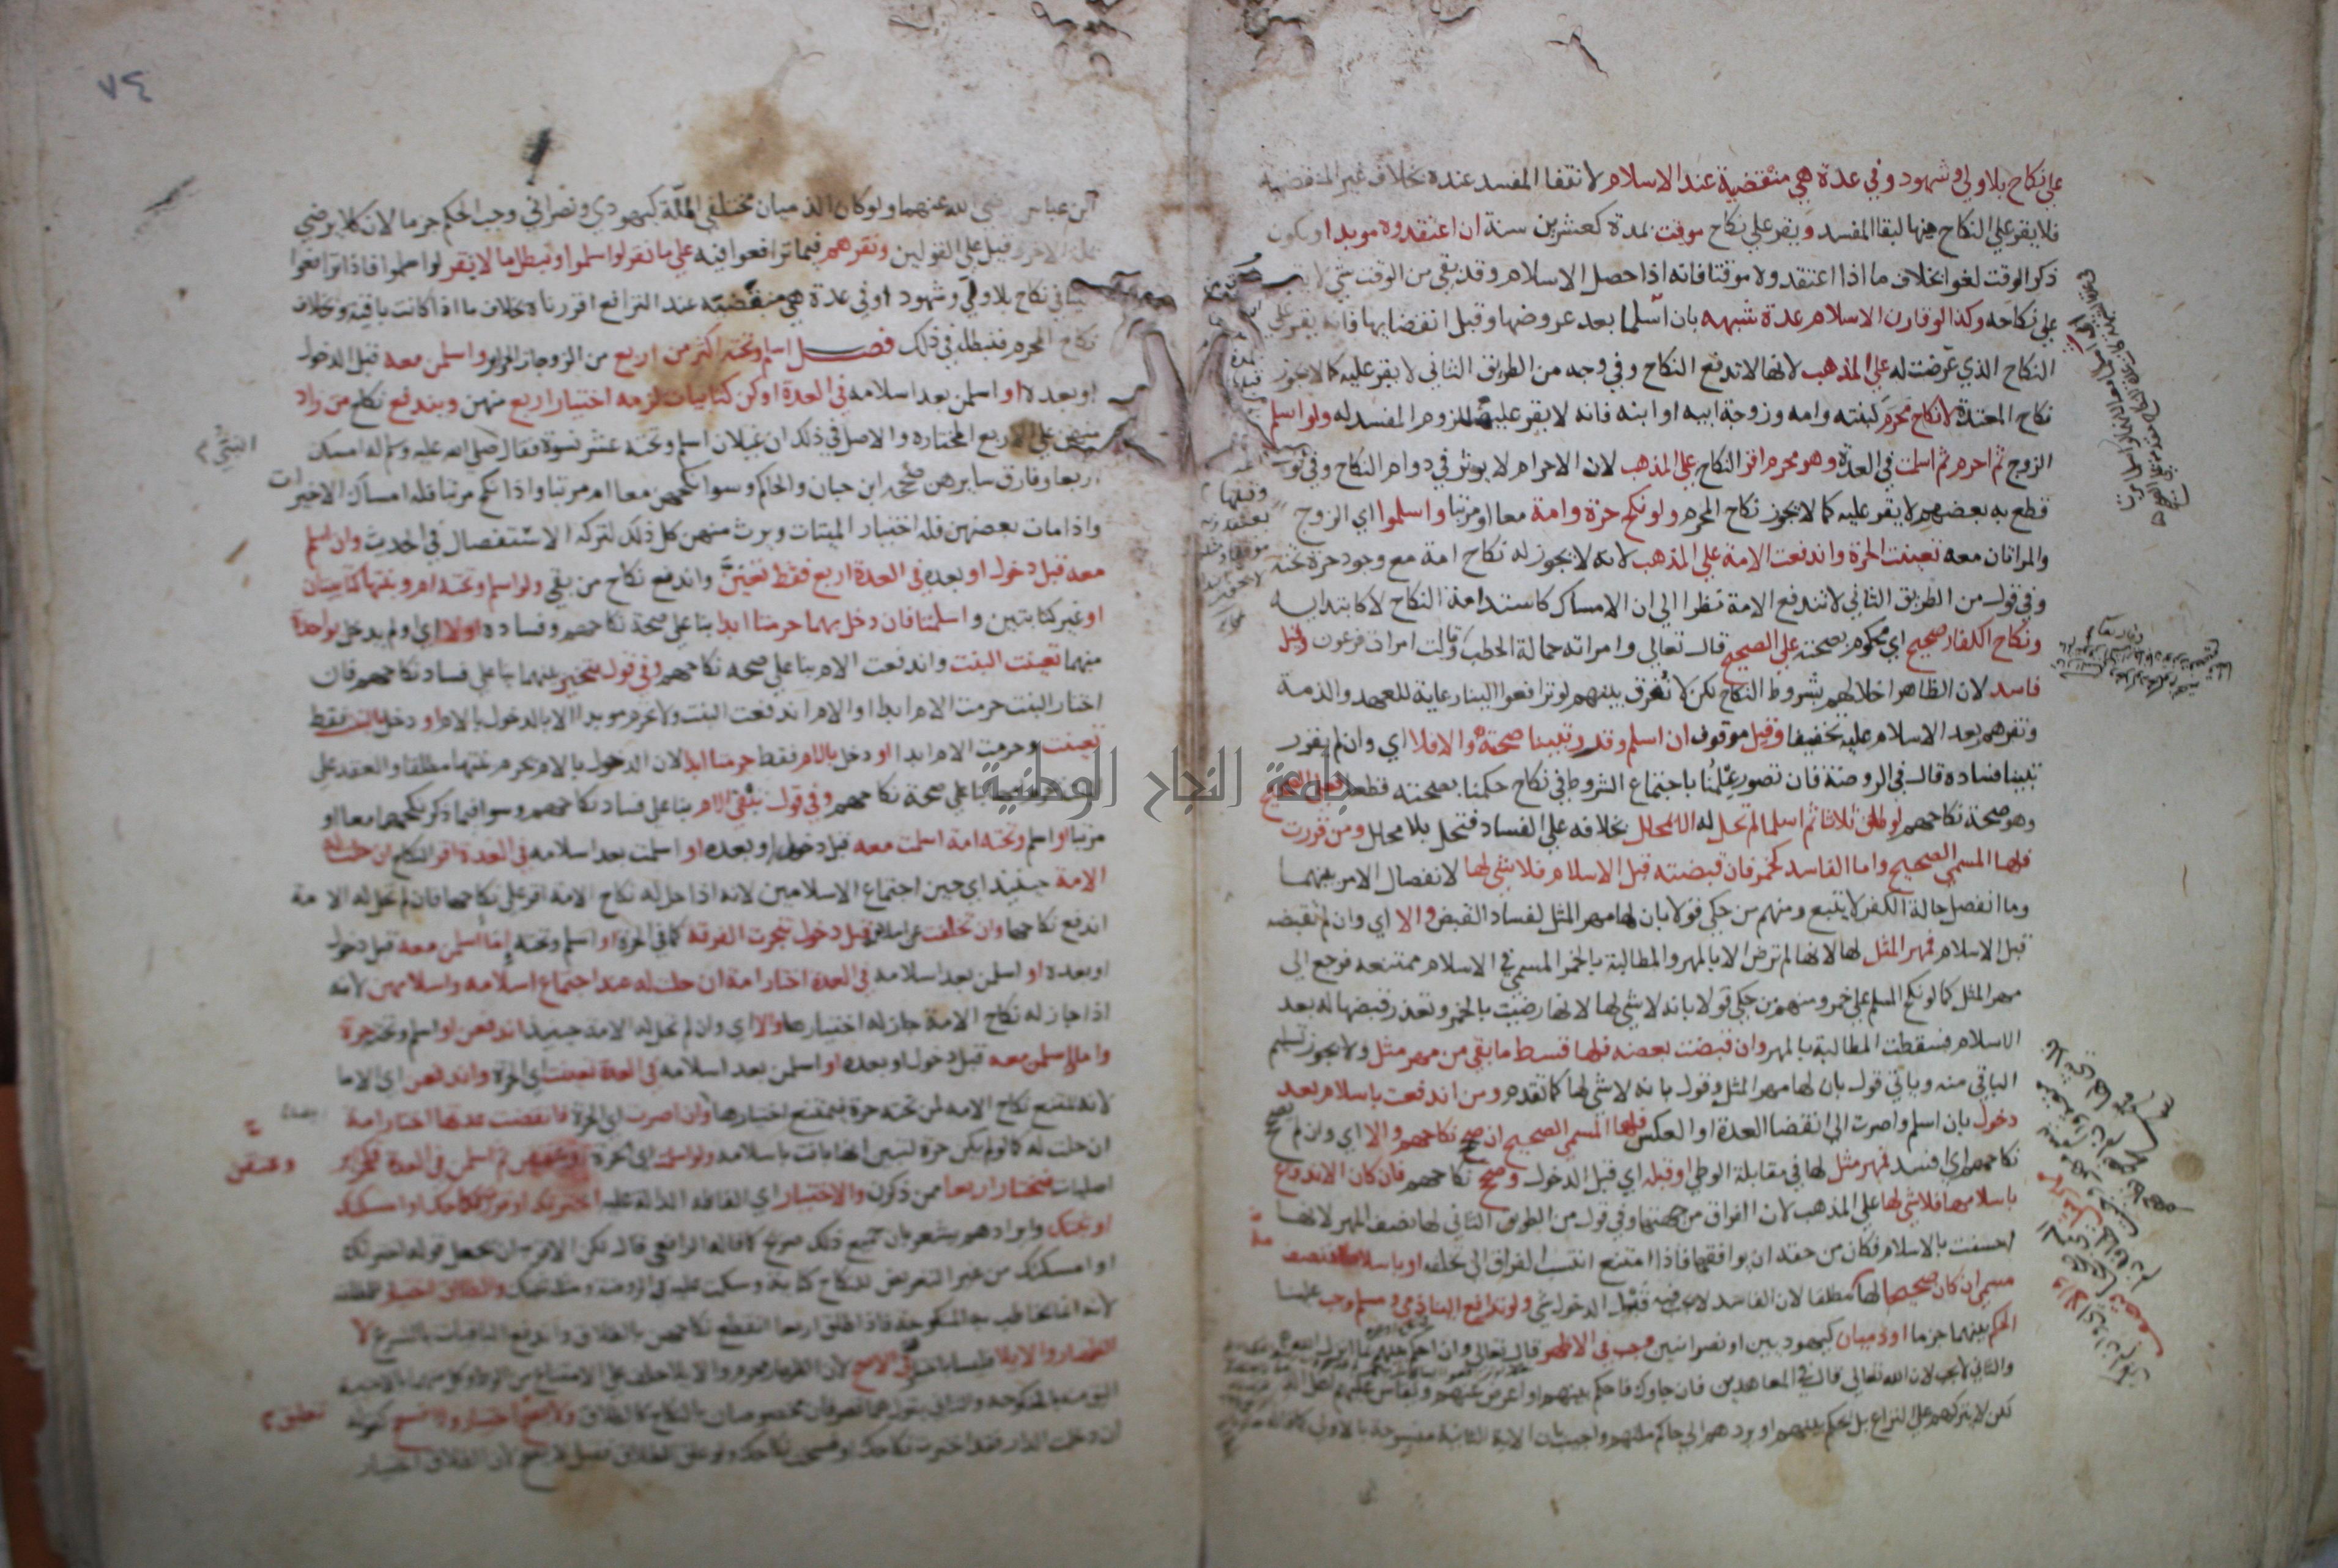 علي نكاح بلا ولي وشهود وفي عدة هي منقضية عند الاسلام لانتفا المفسد عنده بخلاف غير المنقضية
فلا يقر علي النكاح فيها لبقا المفسد ويقر علي نكاح موقت بمدة كعشرين سنة ان اعتقدوه موبدا ويكون
ذكر الوقت لغوا بخلاف ما اذا اعتقدوه موقتا فانه اذا حصل الاسلام وقد بقي من الوقت شي لا يقر
علي نكاحه وكذا لو قارن الاسلام عدة شبهه بان اسلما بعد عروضها وقبل انقضايها فانه يقر علي
النكاح الذي عرضت له علي المذهب لانها لا تدفع النكاح وفي وجه من الطريق الثاني لا يقر عليه كما لا يجوز
نكاح المعتدة لا نكاح محرم كبنته وامه وزوجة ابيه او ابنه فانه لا يقر عليه للزوم المفسد له ولو اسلم
الزوج ثم احرم ثم اسلمت في العدة وهو محرم اقر النكاح علي المذهب لان الاحرام لا يوثر في دوام النكاح وفي قول
قطع به بعضهم لا يقر عليه كما لا يجوز نكاح المحرم ولو نكح حرة وامة معا او مرتبا واسلموا اي الزوج
والمراتان معه تعينت الحرة واندفعت الامة علي المذهب لانه لا يجوز له نكاح امة مع وجود حرة تحته
وفي قول من الطريق الثاني لا تندفع الامة نظرا الي ان الامساك كاستدامة النكاح لا كابتدايه
ونكاح الكفار صحيح اي محكوم بصحته علي الصحيح قال تعالي وامراته حمالة الحطب وقالت امرات فرعون وقيل
فاسد لان الظاهر اخلالهم بشروط النكاح لكن لا نفرق بينهم لو ترافعوا الينا رعاية للعهد والذمة
ونقرهم بعد الاسلام عليه تخفيفا وقيل موقوف ان اسلم وقرر تبينا صحته والا فلا اي وان لم يقرر
تبينا فساده قال في الروضة فان تصور علمنا باجتماع الشروط في نكاح حكمنا بصحته قطعا فعلي الصحيح
وهو صحة نكاحهم لو طلق ثلاثا ثم اسلما لم تحل له الا بمحلل بخلافه علي الفساد فتحل بلا محلل ومن قررت
فلها المسمي الصحيح واما الفاسد كخمر فان قبضته قبل الاسلام فلا شي لها لانفصال الامر بينهما
وما انفصل حالة الكفر لا يتبع ومنهم من حكي قولا بان لها مهر المثل لفساد القبض والا اي وان لم تقبضه
قبل الاسلام فمهر المثل لها لانها لم ترض الا بالمهر والمطالبة بالخمر المسمي في الاسلام ممتنعه فرجع الي
مهر المثل كما لو نكح المسلم علي خمر ومنهم من حكي قولا بانه لا شي لها لانها رضيت بالخمر وتعذر قبضها له بعد
الاسلام فسقطت المطالبة بالمهر وان قبضت بعضه فلها قسط ما بقي من مهر مثل ولا يجوز تسليم
الباقي منه وياتي قول بان لها مهر المثل وقول بانه لا شي لها كما تقدم ومن اندفعت باسلام بعد
دخول بان اسلم واصرت الي انقضا العدة او العكس فلها المسمي الصحيح ان صح نكاحهم والا اي وان لم يصح
نكاحهم اي فسد فمهر مثل لها في مقابلة الوطي او قبله اي قبل الدخول وصح نكاحهم فان كان الاندفاع
باسلامها فلا شي لها علي المذهب لان الفراق من جهتها وفي قول من الطريق الثاني لها نصف المهر لانها
احسنت بالاسلام فكان من حقه ان يوافقها فاذا امتنع انتسب الفراق الي تخلفه او باسلامه فنصف
مسمي ان كان صحيحا لها مطلقا لان الفاسد لا يجب فيه قبل الدخول شي ولو ترافع الينا ذمي ومسلم وجب علينا
الحكم بينهما جزما او ذميان كيهوديين او نصرانيين وجب في الاظهر قال تعالي وان احكم بينهم بما انزل الله
والثاني لا يجب لان الله تعالي قال في المعاهدين فان جاوك فاحكم بينهم او اعرض عنهم وتقاس عليهم اهل الذمة
لكن لا يتركهم علي النزاع بل يحكم بينهم او يردهم الي حاكم ملتهم واجيب بان الاية الثانية منسوخة بالاولي كما قاله
٧٤
ابن عباس رضي الله عنهما ولو كان الذميان مختلفي الملة كيهودي ونصراني وجب الحكم جزما لان كلا لا يرضي
بملة الاخر وقيل علي القولين ونقرهم فيما ترافعوا فيه علي ما نقر لو اسلموا ونبطل ما لا نقر لو اسلموا فاذا ترافعوا
الينا في نكاح بلا ولي وشهود او في عدة هي منقضية عند الترافع اقررناه بخلاف ما اذا كانت باقية وبخلاف
نكاح المحرم فنبطله في ذلك فصل اسلم وتحته اكثر من اربع من الزوجات الحراير واسلمن معه قبل الدخول
او بعده او اسلمن بعد اسلامه في العدة او كن كتابيات لزمه اختيار اربع منهن ويندفع نكاح من زاد
منهن علي الاربع المختاره والاصل في ذلك ان غيلان اسلم وتحته عشر نسوة فقال صلي الله عليه وسلم له امسك
النبي
اربعا وفارق سايرهن صححه ابن حبان والحاكم وسوا نكحهن معا ام مرتبا واذا نكح مرتبا فله امساك الاخيرات
واذا مات بعضهن فله اختيار الميتات ويرث منهن كل ذلك لتركه الاستفصال في الحديث وان اسلم
معه قبل دخول او بعده في العدة اربع فقط تعين واندفع نكاح من بقي ولو اسلم وتحته ام وبنتها كتابيتان
او غير كتابيتين واسلمتا فان دخل بهما حرمتا ابدا بنا علي صحة نكاحهم وفساده او لا اي ولم يدخل بواحدة
منهما تعينت البنت واندفعت الام بنا علي صحه نكاحهم وفي قول يتخير بينهما بنا علي فساد نكاحهم فان
اختار البنت حرمت الام ابدا او الام اندفعت البنت ولا تحرم موبدا الا بالدخول بالام او دخل بالبنت فقط
تعينت وحرمت الام ابدا او دخل بالام فقط حرمتا ابدا لان الدخول بالام يحرم بنتها مطلقا والعقد علي
البنت يحرم امها بنا علي صحة نكاحهم وفي قول تبقي الام بنا علي فساد نكاحهم وسوا فيما ذكر نكحهما معا او
مرتبا او اسلم وتحته امة اسلمت معه قبل دخول او بعده او اسلمت بعد اسلامه في العدة اقر النكاح ان حلت له
الامة حينيذ اي حين اجتماع الاسلامين لانه اذا حل له نكاح الامة اقر علي نكاحها فان لم تحل له الامة
اندفع نكاحها وان تخلفت عن اسلامه قبل دخول تنجزت الفرقة كما في الحرة او اسلم وتحته اما اسلمن معه قبل دخول
او بعده او اسلمن بعد اسلامه في العدة اختار امة ان حلت له عند اجتماع اسلامه واسلامهن لانه
اذا جاز له نكاح الامة جاز له اختيارها والا اي وان لم تحل له الامة حينيذ اندفعن او اسلم وتحته حرة
واما اسلمن معه قبل دخول او بعده او اسلمن بعد اسلامه في العدة تعينت اي الحرة واندفعن اي الاما
لانه يمتنع نكاح الامه لمن تحته حرة فيمتنع اختيارها وان اصرت اي الحرة فانقضت عدتها اختار امة
ان حلت له كما لو لم يكن حرة لتبين انها بانت باسلامه ولو اسلمت اي الحرة وعتقن ثم اسلمن في العدة فكحراير
وعتقن
اصليات فيختار اربعا ممن ذكرن والاختيار اي الفاظه الدالة عليه اخترتك او قررت نكاحك او امسكتك
او ثبتك وايرادهم يشعر بان جميع ذلك صريح كما قاله الرافعي قال لكن الاقرب ان يجعل قوله اخترتك
او امسكتك من غير التعرض للنكاح كناية وسكت عليه في الروضة ومثله ثبتك والطلاق اختيار للمطلقه
لانه انما يخاطب به المنكوحة فاذا طلق اربعا انقطع نكاحهن بالطلاق واندفع الباقيات بالشرع لا
الظهار والايلا فليسا باختيار في الاصح لان الظهار محرم والايلا حلف علي الامتناع من الوطء وكل منهما بالاجنبية
اليق منه بالمنكوحة والثاني يقول هما تصرفان مخصوصان بالنكاح كالطلاق ولا يصح اختيار ولا فسخ كقوله
تعليق
ان دخلت الدار فقد اخترت نكاحك او فسخت نكاحك ولو علق الطلاق فقيل لا يصح لان الطلاق اختيار
جامعة النجاح الوطنية